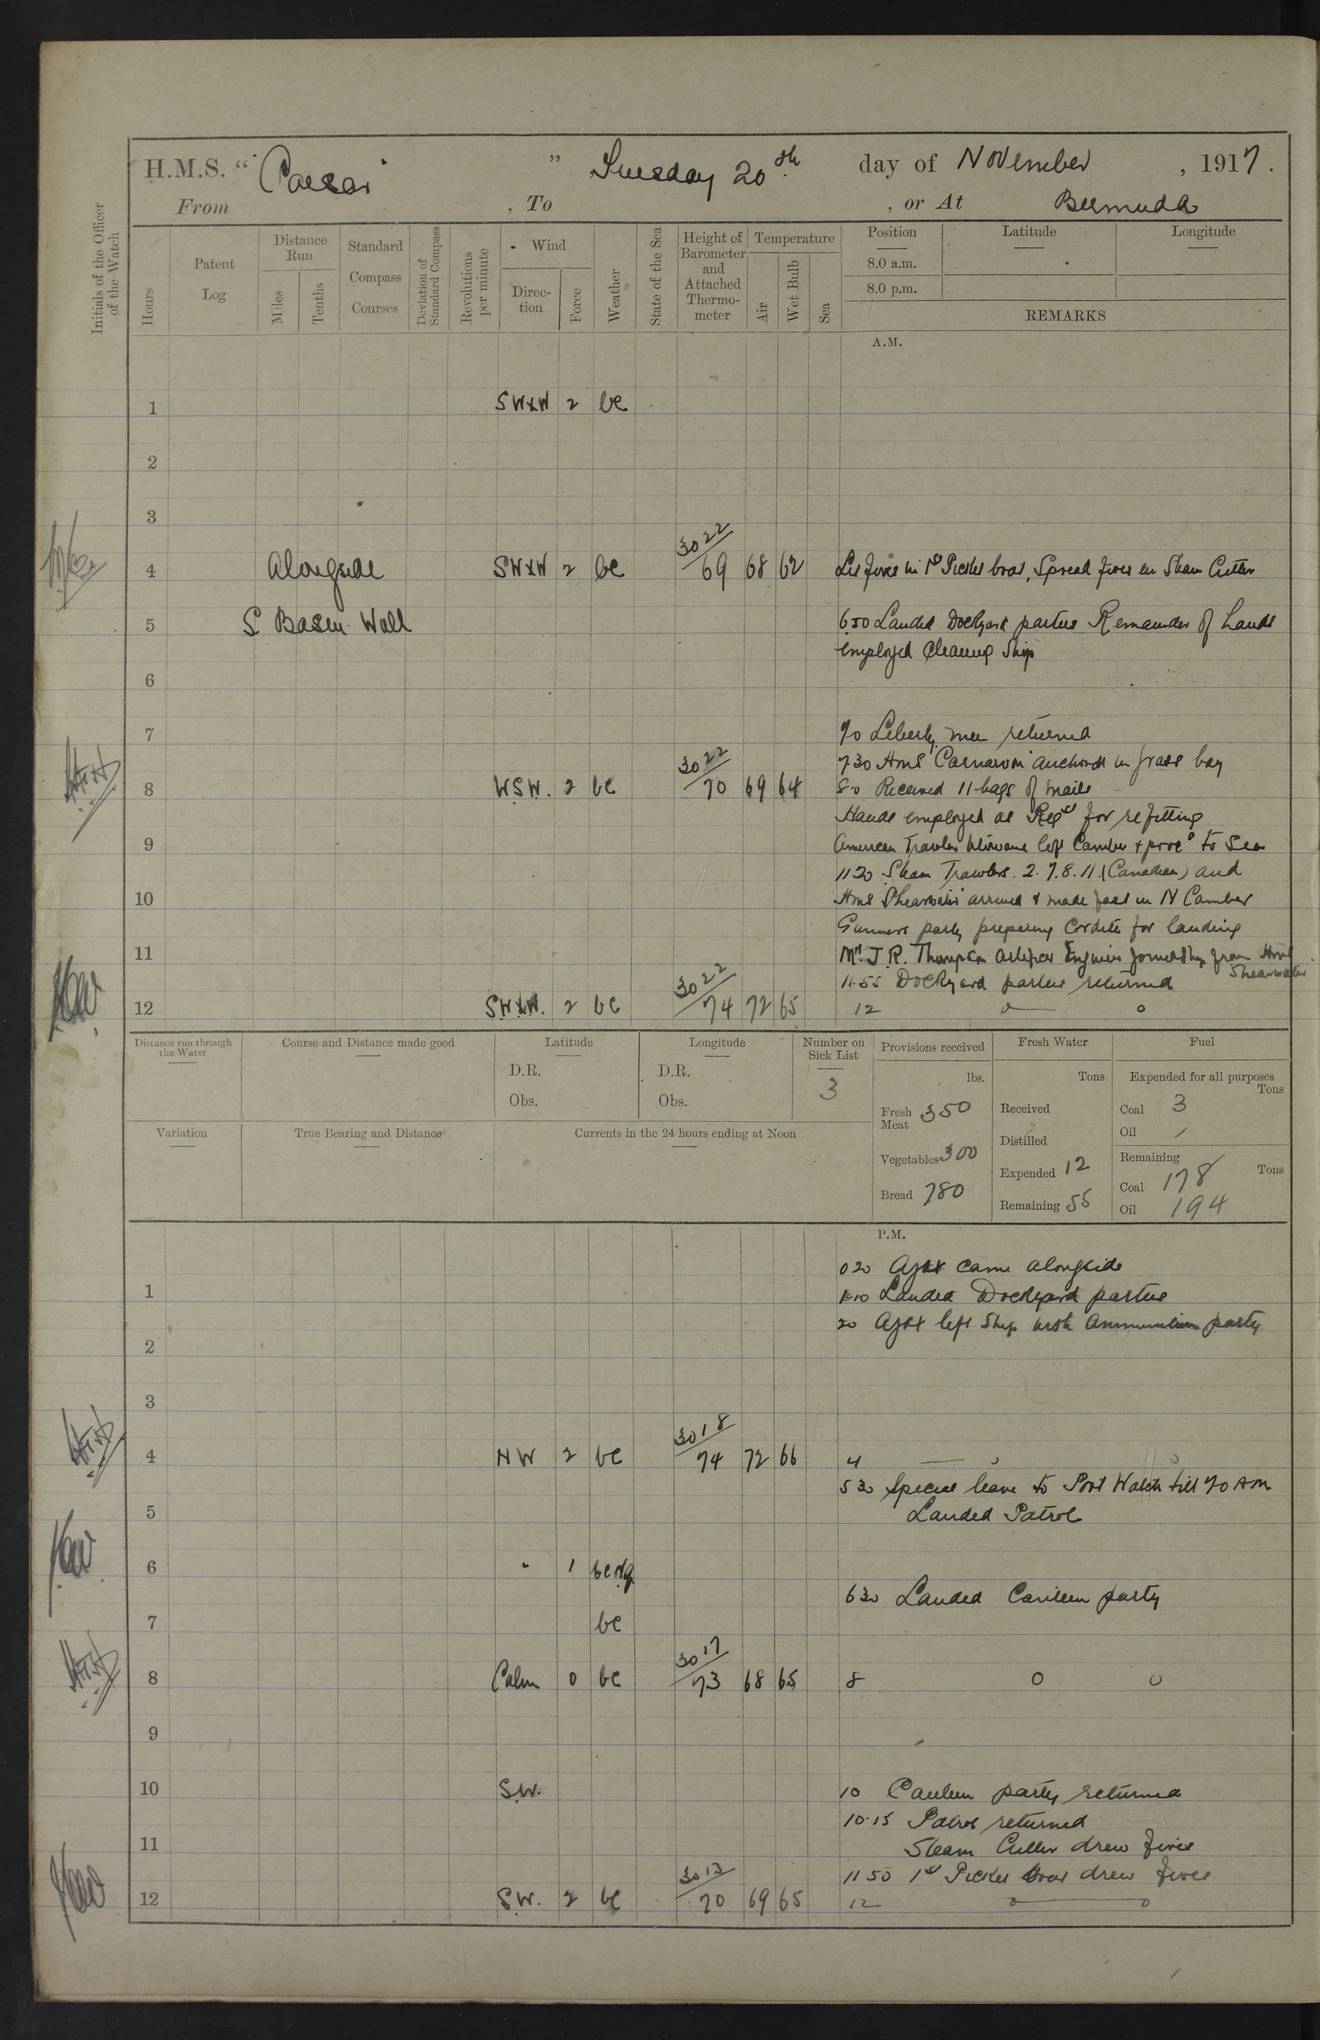 H.M.S. "Caesar" Tuesday 20th day of November, 1917.
From , To , or At Bermuda
Initials of the Officer of the Watch
Hours
Patent Log
Distance Run
Miles
Tenths
Standard Compass Courses
Deviation of Standard Compass
Revolutions per minute
Wind
Direction
Force
Weather
State of the Sea
Height of Barometer and Attached Thermometer
Temperature
Air
Wet Bulb
Sea
Position
8.0 a.m.
8.0 p.m.
Latitude
Longitude
REMARKS
A.M.
1 SWxW 2 bc
2
3
4 Alongside SWxW 2 bc 30 22/69 68 62 Lit fires in 1st Picket boat, Spread fires in Steam Cutter
5 S Basin Wall 6.50 Landed Dockyard parties Remainder of hands
employed cleaning Ship
6
7 7 0 Liberty men returned
7 30 HMS Carnarvon anchored in Grass bay
8 WSW. 2 bc 30 22/70 69 64 8 0 Received 11 bags of mails
Hands employed as Reqd for refitting
9 American Trawler left Camber & procd to Sea
11 20 Steam Trawlers. 2. 7. 8. 11. (Canadian) and
10 HMS Shearwater arrived & made fast in N Camber
Gunners party preparing Cordite for landing
11 Mr J. R. Thompson Artificer Engineer joined Ship from HMS Shearwater
11.55 Dockyard parties returned
12 SWxW. 2 bc 30 22/74 72 65 12
Distance run through the Water
Course and Distance made good
Latitude
D.R.
Obs.
Longitude
D.R.
Obs.
Number on Sick List
3
Provisions received
lbs.
Fresh Meat 350
Vegetables 300
Bread 780
Fresh Water
Tons
Received
Distilled
Expended 12
Remaining 55
Fuel
Expended for all purposes
Tons
Coal 3
Oil /
Remaining
Tons
Coal 178
Oil 194
Variation
True Bearing and Distance
Currents in the 24 hours ending at Noon
P.M.
0 20 Ajax came alongside
1 1 10 Landed Dockyard parties
2 0 Ajax left Ship with Ammunition party
2
3
4 NW 2 bc 30 18/74 72 66 4
5 30 Special leave to Port Watch till 7 0 AM
5 Landed Patrol
6 " 1
6 30 Landed Canteen party
7 bc
8 Calm 0 bc 30 17/73 68 65 8
9
10 S.W. 10 Canteen party returned
10.15 Patrol returned
11 Steam Cutter drew fires
11 50 1st Picket boat drew fires
12 S.W. 2 bc 30 13/70 69 65 12